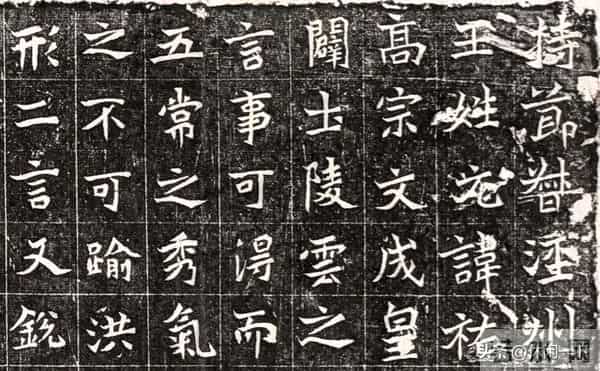 持節督涇州
王姓元諱祐
高宗文成皇
闢土陵雲之
言事可得而
五常之秀氣
之不可踰洪
形二言又銳
头条@